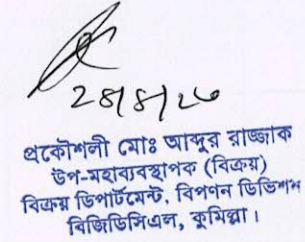 ২৪/৪/২৩
প্রকৌশলী মোঃ আব্দুর রাজ্জাক
উপ-মহাব্যবস্থাপক (বিক্রয়)
বিক্রয় ডিপার্টমেন্ট, বিপণন ডিভিশন
বিজিডিসিএল, কুমিল্লা।